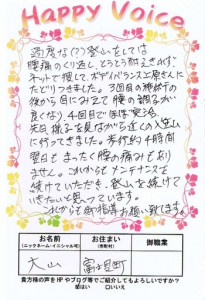 Happy Voice
過度な(?)登山をしては
腰痛のくり返し、とうとう耐えきれず
ネットで探して、ボディバランス上原さんに
たどりつきました。3回目の施術の
後から目にみえて腰の調子が
良くなり、4回目でほぼ完治。
先日、様子を見ながら近くの入笠山
に行ってきました。歩行約4時間
翌日もまったく腰の痛みもあり
ません。これからもメンテナンスを
続けていただき、登山を続けて
いきたいと思っています。
これからも御指導お願い致します。
お名前
(ニックネーム・イニシャル可)
お住まい
(市町村)
御職業
大山
富士見町
貴方様の声をHPやブログ等でご紹介してもよろしいですか?
はい
口いいえ